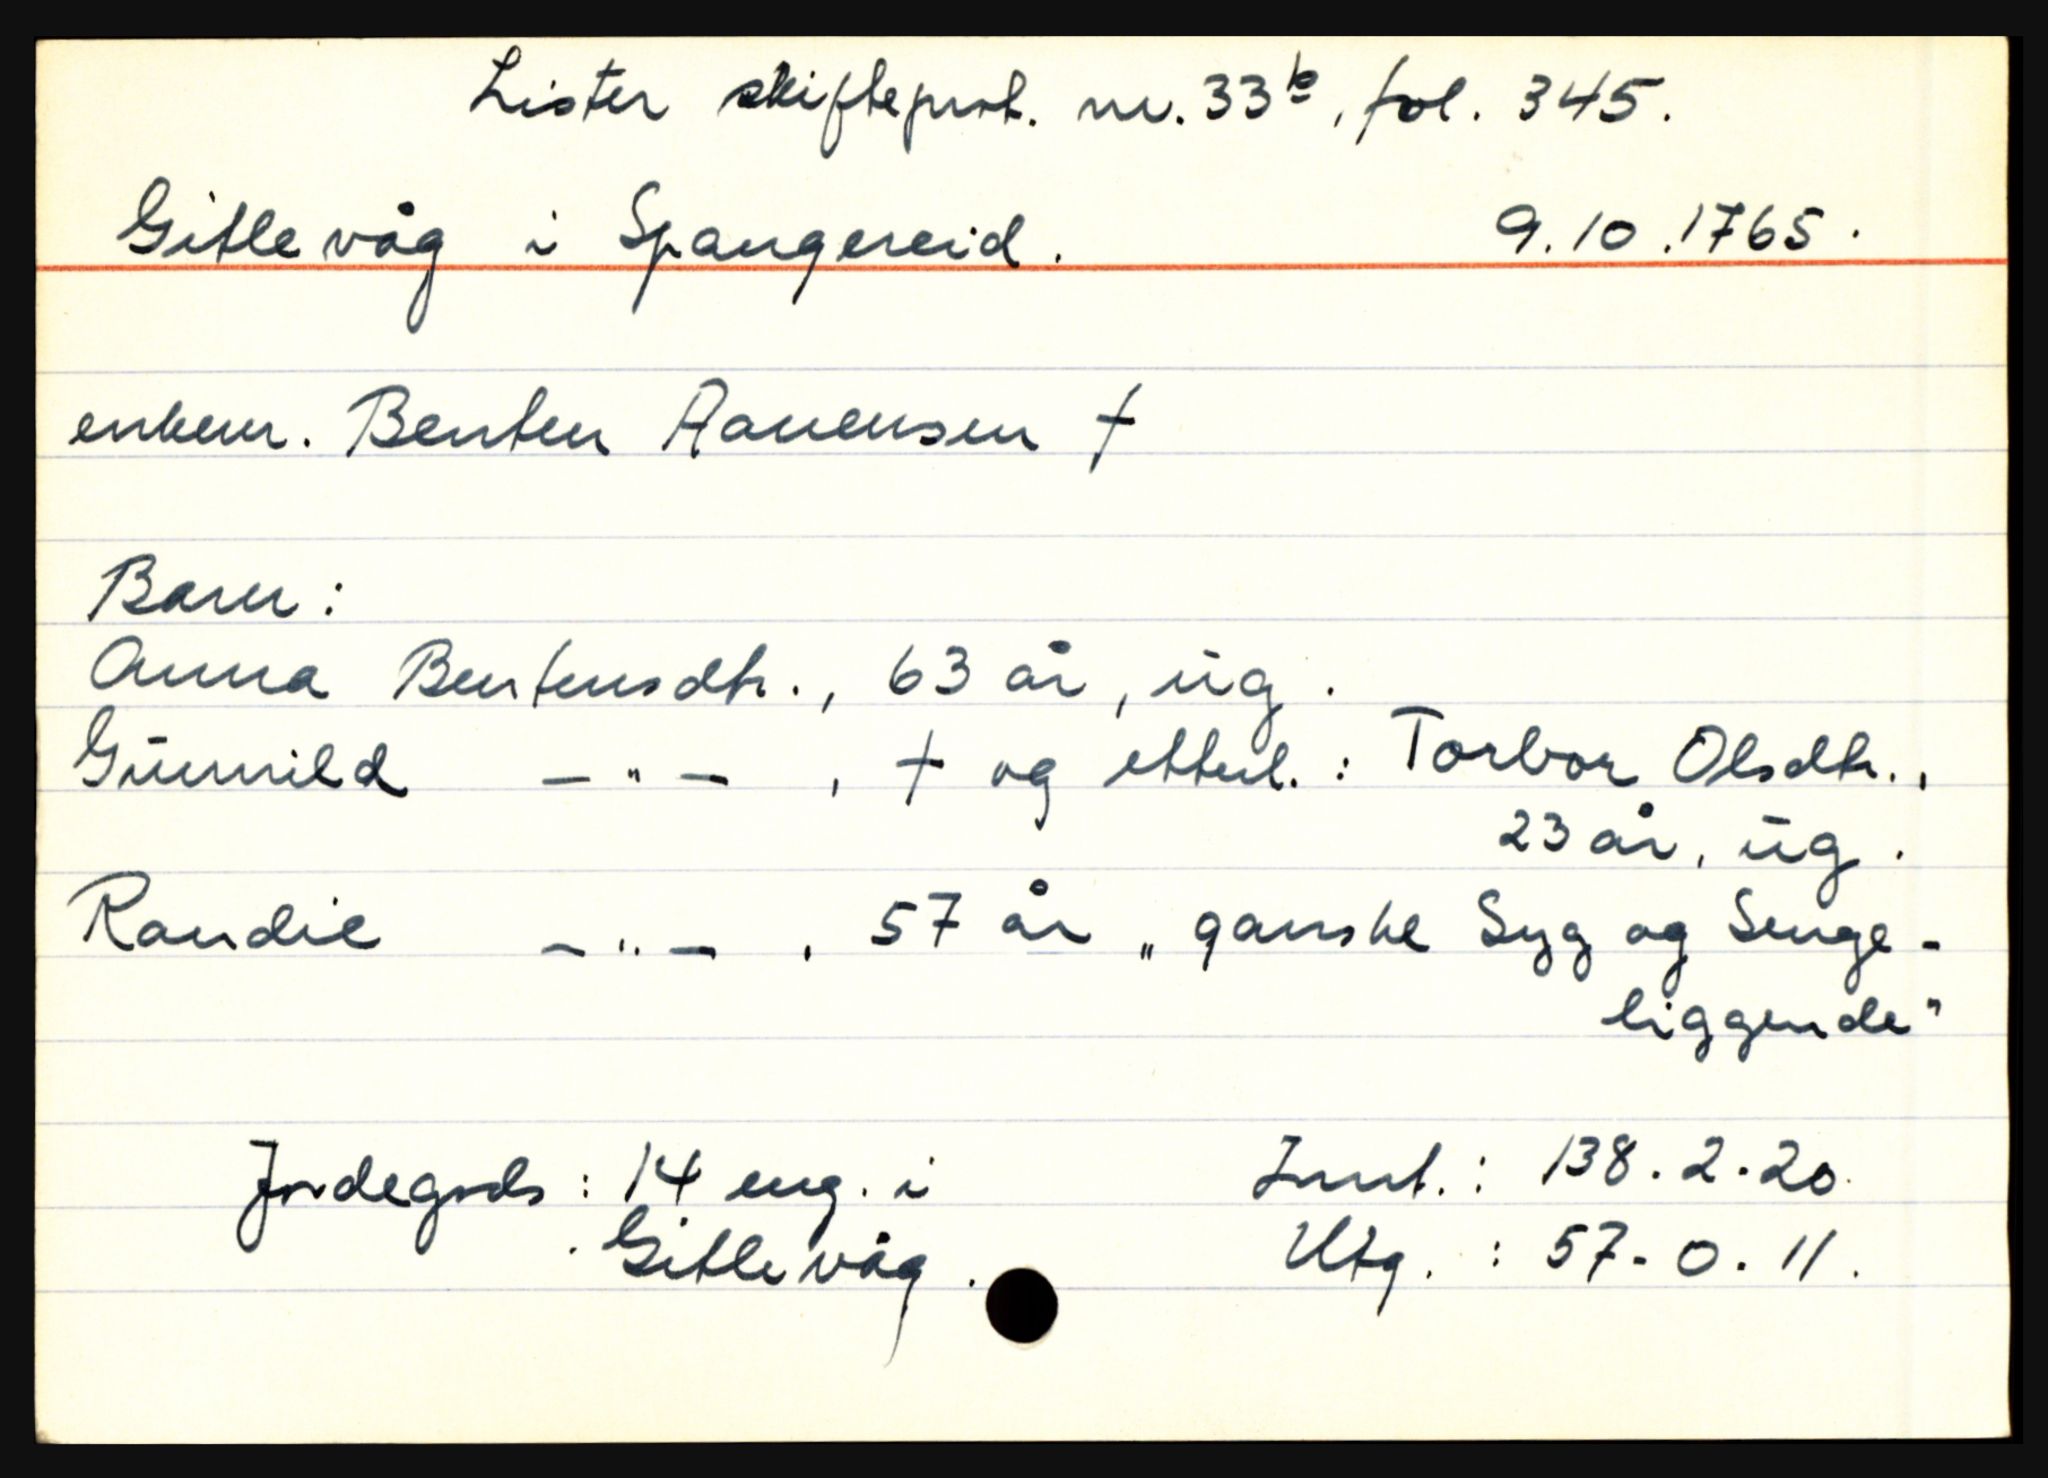 Lister skifteprot. nr. 33b, fol. 345.
Gitlevåg i Spangereid. 9.10.1765.
enkem. Benten Aanensen †
Barn:
Anna Bentensdtr., 63 år, ug.
Gunnild —"—, † og etterl.: Torbor Olsdtr.,
23 år, ug.
Randie —"—, 57 år „ganske Syg og Senge-
liggende"
Jordegods: 14 eng. i Innt.: 138.2.20.
Gitlevåg. Utg.: 57-0.11.